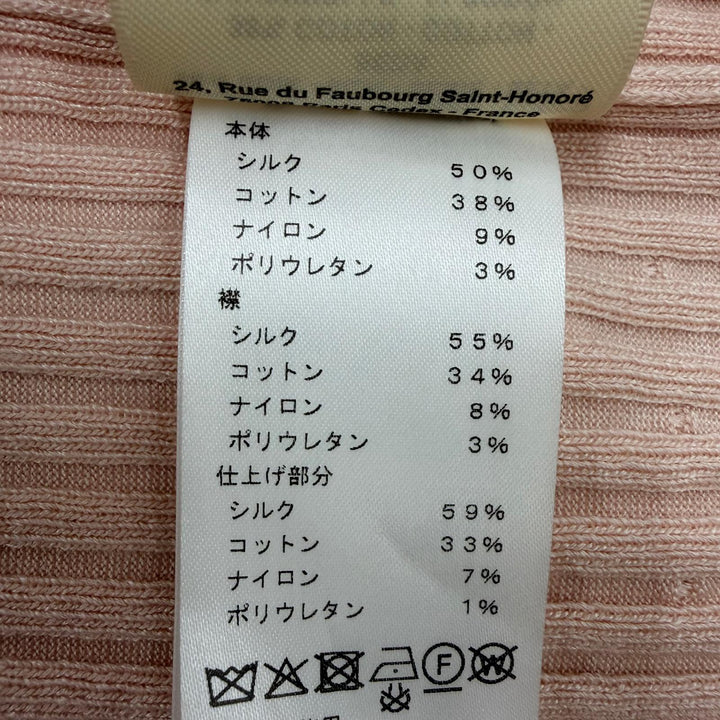 24, Rue du Faubourg Saint-Honoré
75008 Paris Cedex - France
本体
シルク 50%
コットン 38%
ナイロン 9%
ポリウレタン 3%
襟
シルク 55%
コットン 34%
ナイロン 8%
ポリウレタン 3%
仕上げ部分
シルク 59%
コットン 33%
ナイロン 7%
ポリウレタン 1%
F W